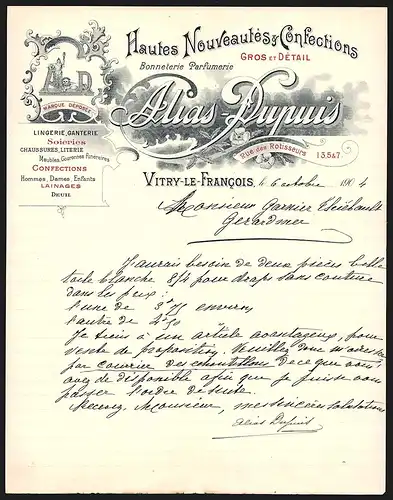 Hautes Nouveautés & Confections
GROS ET DÉTAIL
Bonneterie Parfumerie
A D
MARQUE DÉPOSÉE
Alias Dupuis
LINGERIE, GANTERIE
Soieries
CHAUSSURES, LITERIE
Meubles, Couronnes Funéraires
CONFECTIONS
Hommes, Dames, Enfants
LAINAGES
DEUIL
Rue des Rotisseurs
1, 3, 5 & 7
VITRY-LE-FRANÇOIS, le 6 octobre 1904
Monsieur Garnier Thiébault
Gerardmer
J'aurais besoin de deux pièces belle
toile blanche 8/4 pour draps sans couture
dans les prix :
l'une de 3f75 environ
l'autre de 4f50
Je tiens à un article avantageux, pour
vente de proposition. Veuillez donc m'adresser
par courrier des échantillons de ce que vous
avez de disponible afin que je puisse vous
passer l'ordre de suite.
Recevez Monsieur, mes sincères salutations
Alias Dupuis